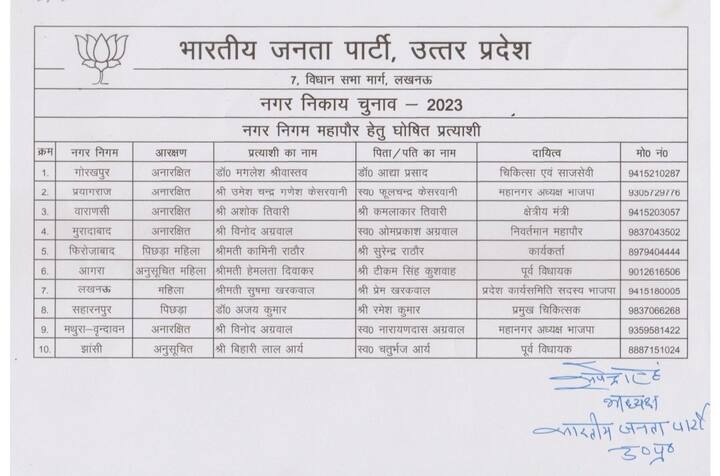 भारतीय जनता पार्टी, उत्तर प्रदेश
7, विधान सभा मार्ग, लखनऊ
नगर निकाय चुनाव – 2023
नगर निगम महापौर हेतु घोषित प्रत्याशी
क्रम नगर निगम आरक्षण प्रत्याशी का नाम पिता/पति का नाम दायित्व मो0 नं0
1. गोरखपुर अनारक्षित डॉ0 मगलेश श्रीवास्तव डॉ0 आद्या प्रसाद चिकित्सा एवं साजसेवी 9415210287
2. प्रयागराज अनारक्षित श्री उमेश चन्द्र गणेश केसरवानी स्व0 फूलचन्द्र केसरवानी महानगर अध्यक्ष भाजपा 9305729776
3. वाराणसी अनारक्षित श्री अशोक तिवारी श्री कमलाकार तिवारी क्षेत्रीय मंत्री 9415203057
4. मुरादाबाद अनारक्षित श्री विनोद अग्रवाल स्व0 ओमप्रकाश अग्रवाल निवर्तमान महापौर 9837043502
5. फिरोजाबाद पिछड़ा महिला श्रीमती कामिनी राठौर श्री सुरेन्द्र राठौर कार्यकर्ता 8979404444
6. आगरा अनुसूचित महिला श्रीमती हेमलता दिवाकर श्री टीकम सिंह कुशवाह पूर्व विधायक 9012616506
7. लखनऊ महिला श्रीमती सुषमा खरकवाल श्री प्रेम खरकवाल प्रदेश कार्यसमिति सदस्य भाजपा 9415180005
8. सहारनपुर पिछड़ा डॉ0 अजय कुमार श्री रमेश कुमार प्रमुख चिकित्सक 9837066268
9. मथुरा-वृन्दावन अनारक्षित श्री विनोद अग्रवाल स्व0 नारायणदास अग्रवाल महानगर अध्यक्ष भाजपा 9359581422
10. झांसी अनुसूचित श्री बिहारी लाल आर्य स्व0 चतुर्भज आर्य पूर्व विधायक 8887151024
अध्यक्ष
भारतीय जनता पार्टी
उ०प्र०